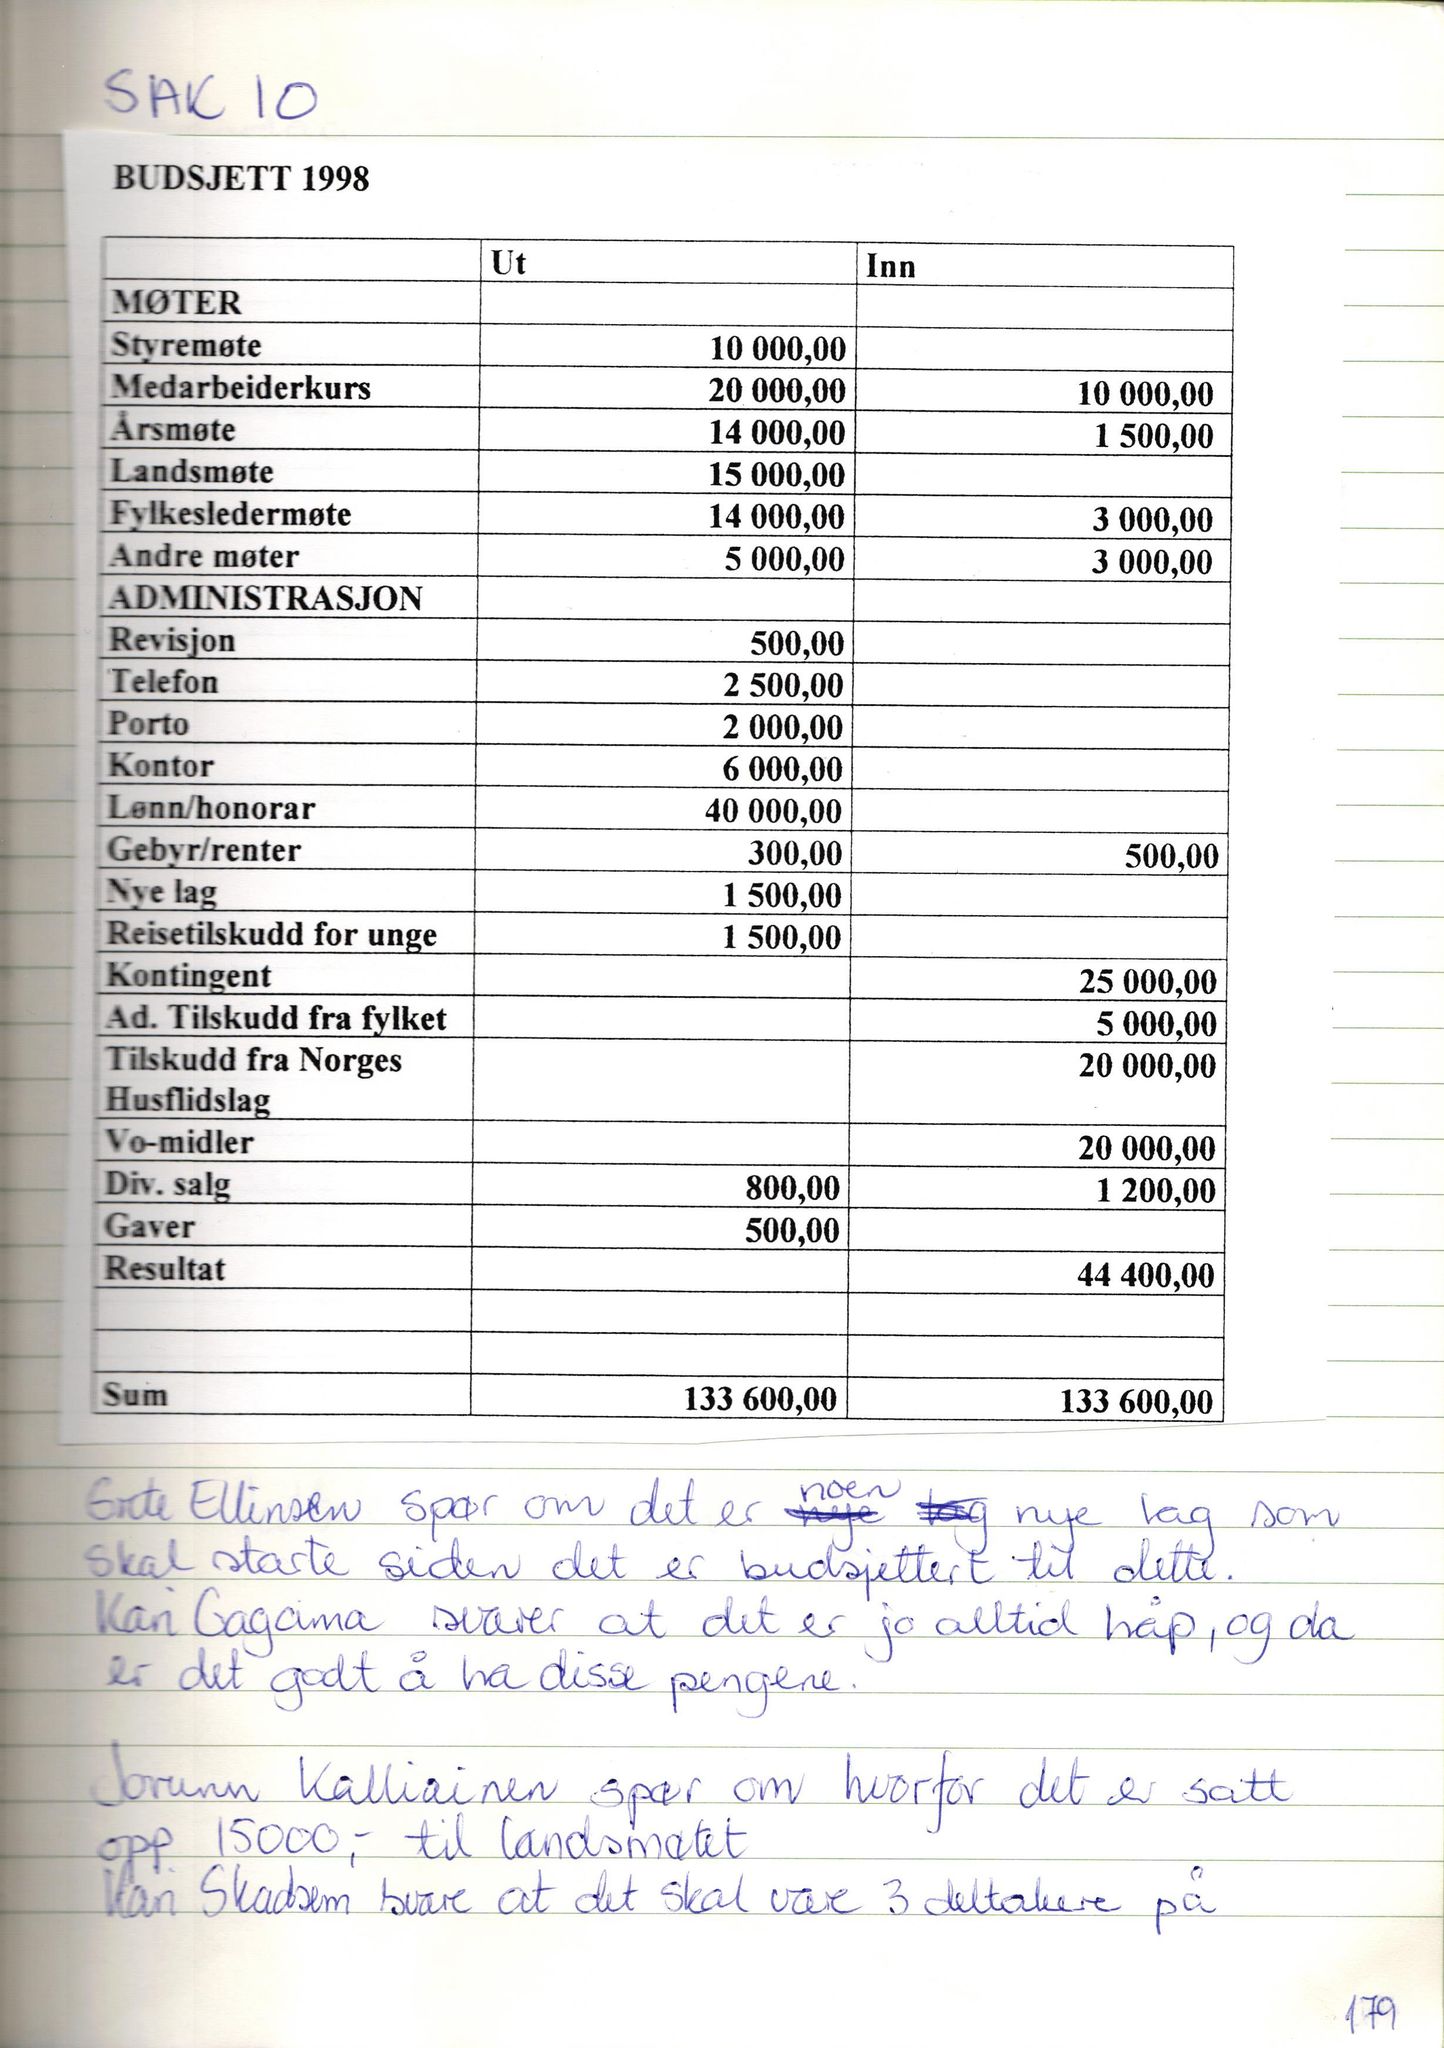 SAK 10
BUDSJETT 1998
Ut Inn
MØTER
Styremøte 10 000,00
Medarbeiderkurs 20 000,00 10 000,00
Årsmøte 14 000,00 1 500,00
Landsmøte 15 000,00
Fylkesledermøte 14 000,00 3 000,00
Andre møter 5 000,00 3 000,00
ADMINISTRASJON
Revisjon 500,00
Telefon 2 500,00
Porto 2 000,00
Kontor 6 000,00
Lønn/honorar 40 000,00
Gebyr/renter 300,00 500,00
Nye lag 1 500,00
Reisetilskudd for unge 1 500,00
Kontingent 25 000,00
Ad. Tilskudd fra fylket 5 000,00
Tilskudd fra Norges 20 000,00
Husflidslag
Vo-midler 20 000,00
Div. salg 800,00 1 200,00
Gaver 500,00
Resultat 44 400,00
Sum 133 600,00 133 600,00
Grete Ellinsen spør om det er noen nye lag som
skal starte siden det er budsjettert til dette.
Kari Gagama svarer at det er jo alltid håp, og da
er det godt å ha disse pengene.
Jorunn Kalliainen spør om hvorfor det er satt
opp 15000,- til landsmøtet
Kari Skadsem svare at det skal være 3 deltakere på
179